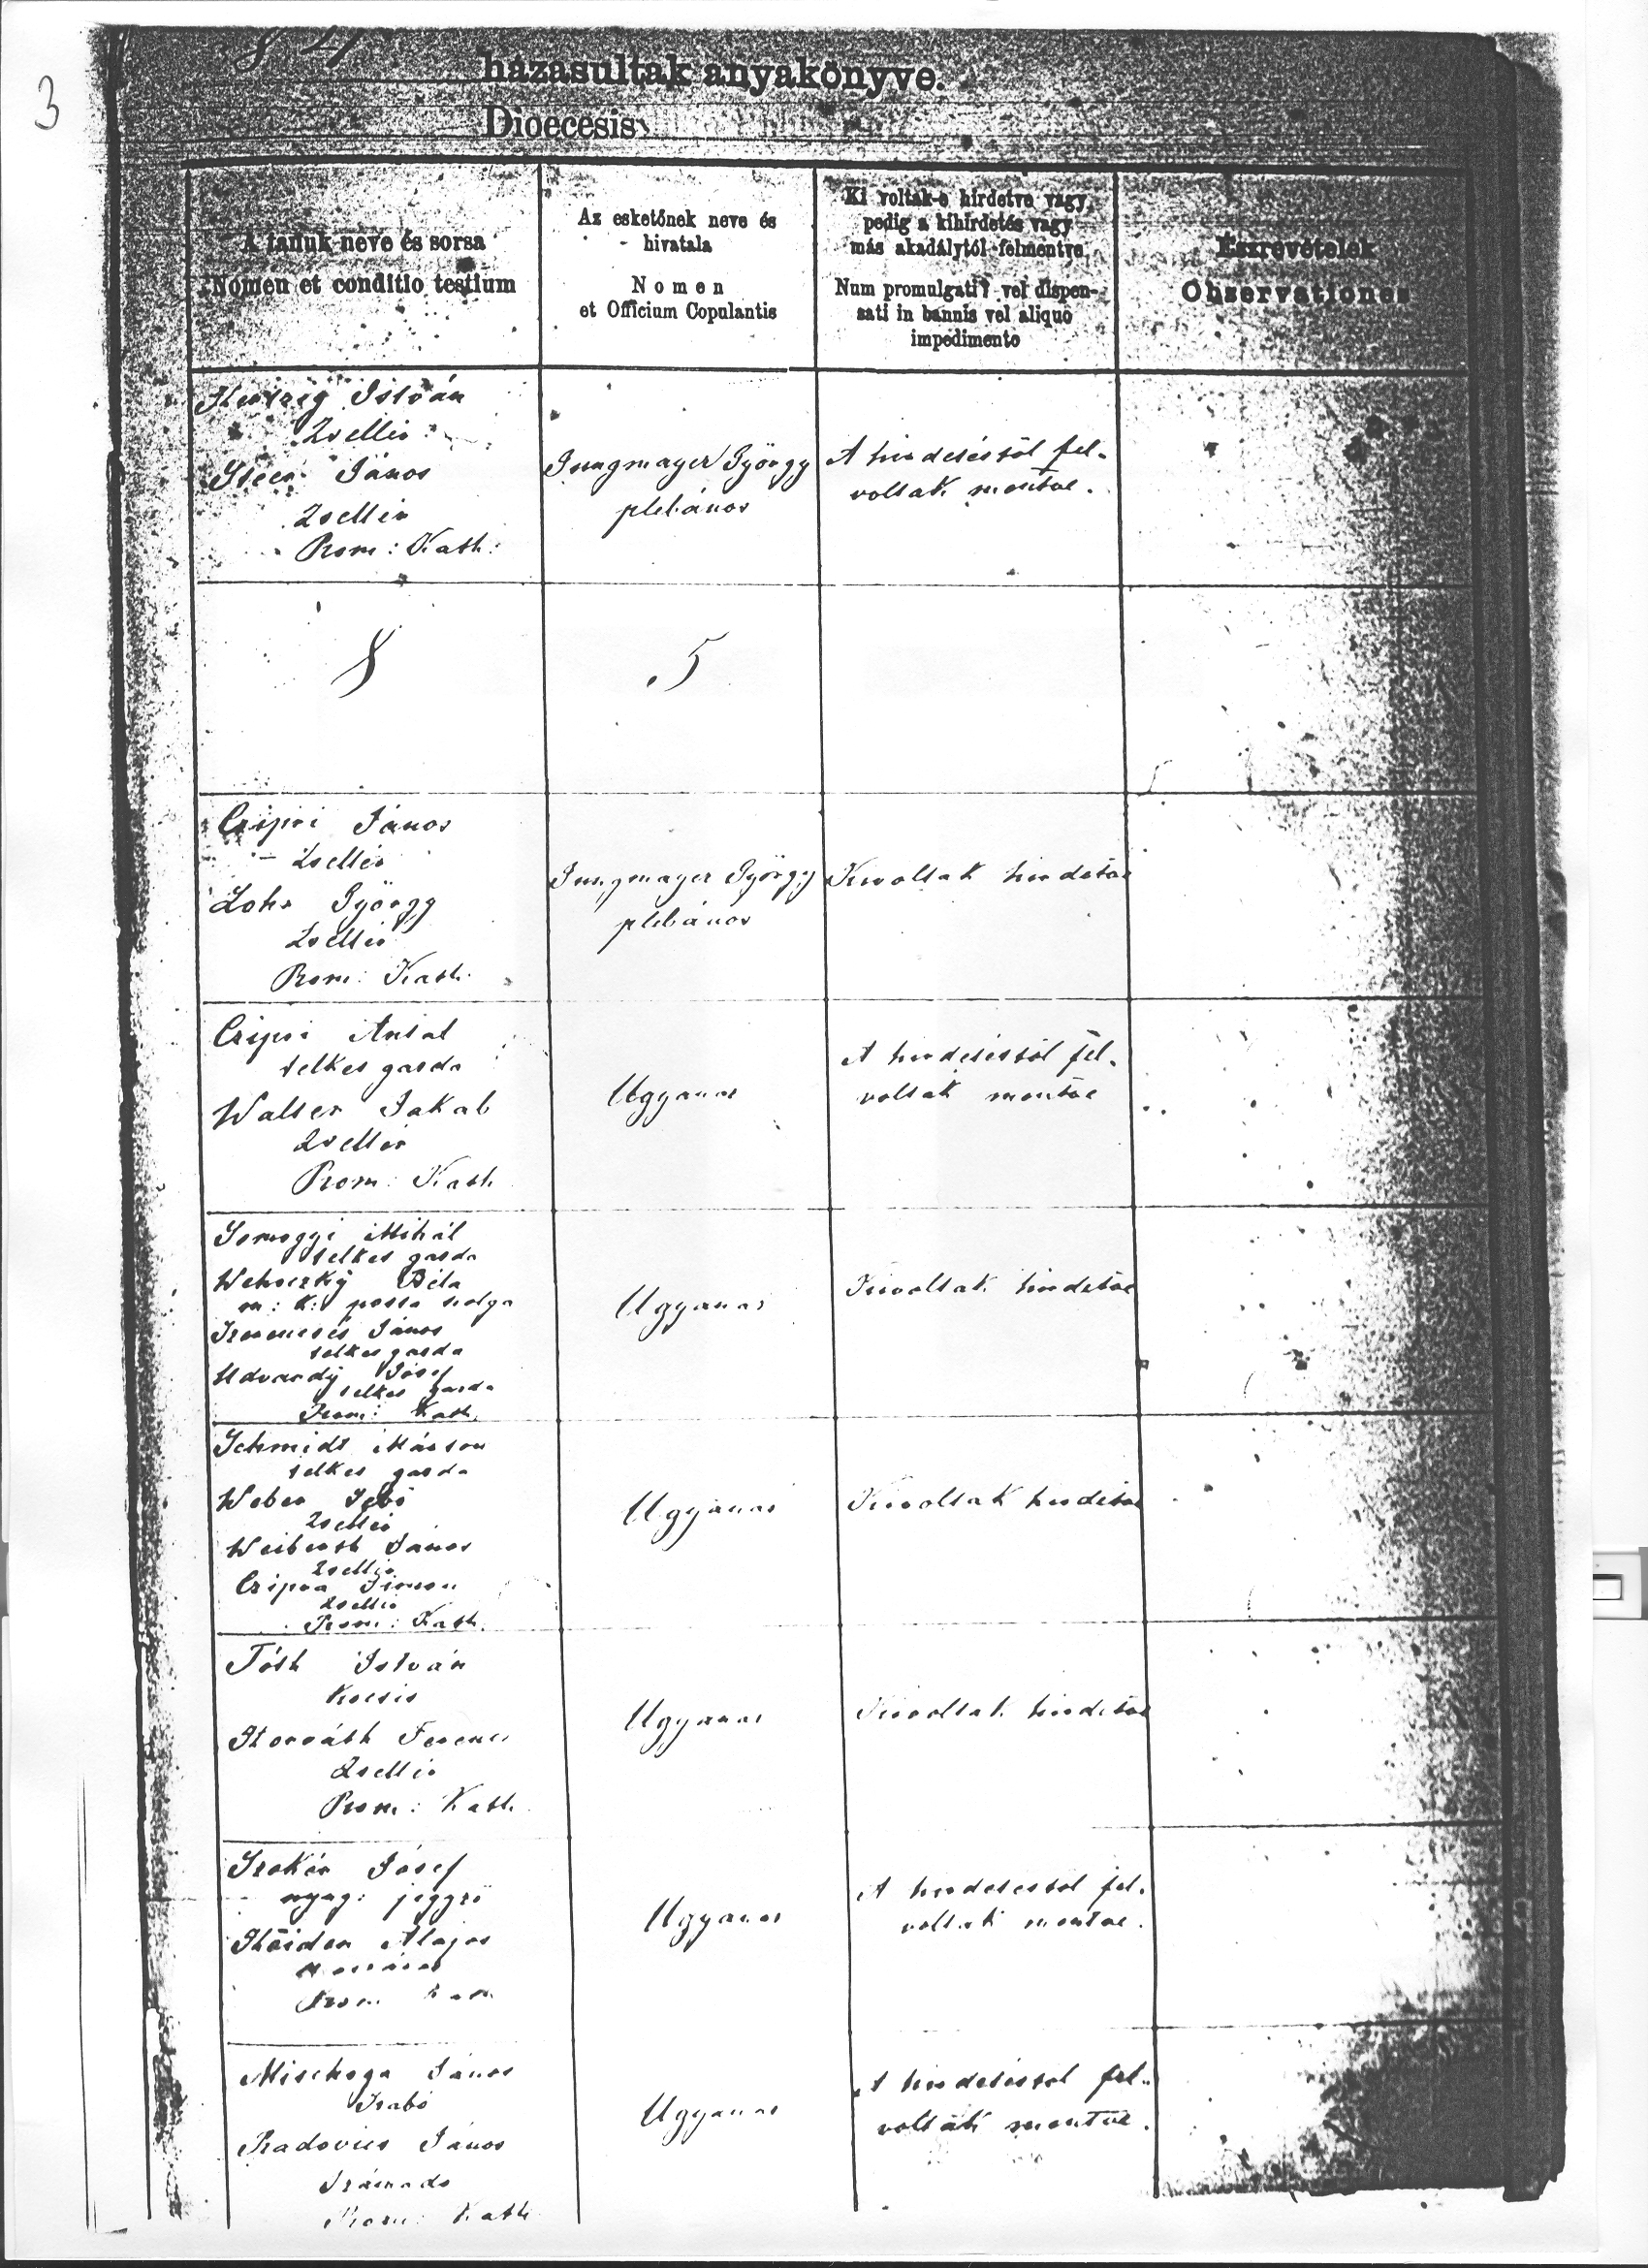 3
házasultak anyakönyve.
Dioecesis
A tanuk neve és sorsa
Nomen et conditio testium
Az esketőnek neve és
hivatala
Nomen
et Officium Copulantis
Ki voltak-e hirdetve vagy
pedig a kihirdetés vagy
más akadálytól felmentve
Num promulgati? vel dispen-
sati in bannis vel aliquo
impedimento
Észrevételek
Observationes
István
Zsellér
János
Zsellér
Rom: Kath:
Jungmayer György
plebános
A hirdetéstől fel-
voltak mentve.
8
5
Czipri János
Zsellér
Lohr György
Zsellér
Rom: Kath:
Jungmayer György
plebános
Kivoltak hirdetve
Czipri Antal
telkes gazda
Walter Jakab
Zsellér
Rom: Kath
Ugyanaz
A hirdetéstől fel-
voltak mentve
Somogyi Mihál
telkes gazda
Wehovzky Béla
m: k: posta szolga
János
telkes gazda
Udvardy József
telkes gazda
Rom: Kath.
Ugyanaz
Kivoltak hirdetve
Schmidt Márton
telkes gazda
Weber
Zsellér
János
Zsellér
Simon
Zsellér
Rom: Kath.
Ugyanaz
Kivoltak hirdetve
Tóth István
Kocsis
Horváth Ferencz
Zsellér
Rom: Kath.
Ugyanaz
Kivoltak hirdetve
József
nyug: jegyző
Alajos
Rom
Ugyanaz
A hirdetéstől fel-
voltak mentve.
János
Szabó
Radovics János
Rom: Kath
Ugyanaz
A hirdetéstől fel-
voltak mentve.